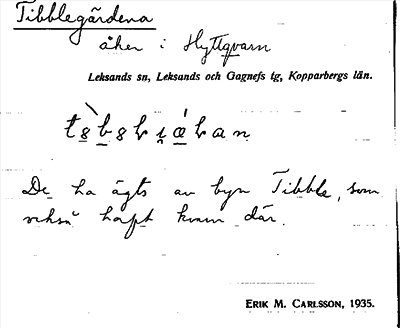 Tibblegärdena
åker i Hyttqvarn
Leksands sn, Leksands och Gagnefs tg, Kopparbergs län.
De ha ägts av byn Tibble, som
också haft kvarn där.
ERIK M. CARLSSON, 1935.